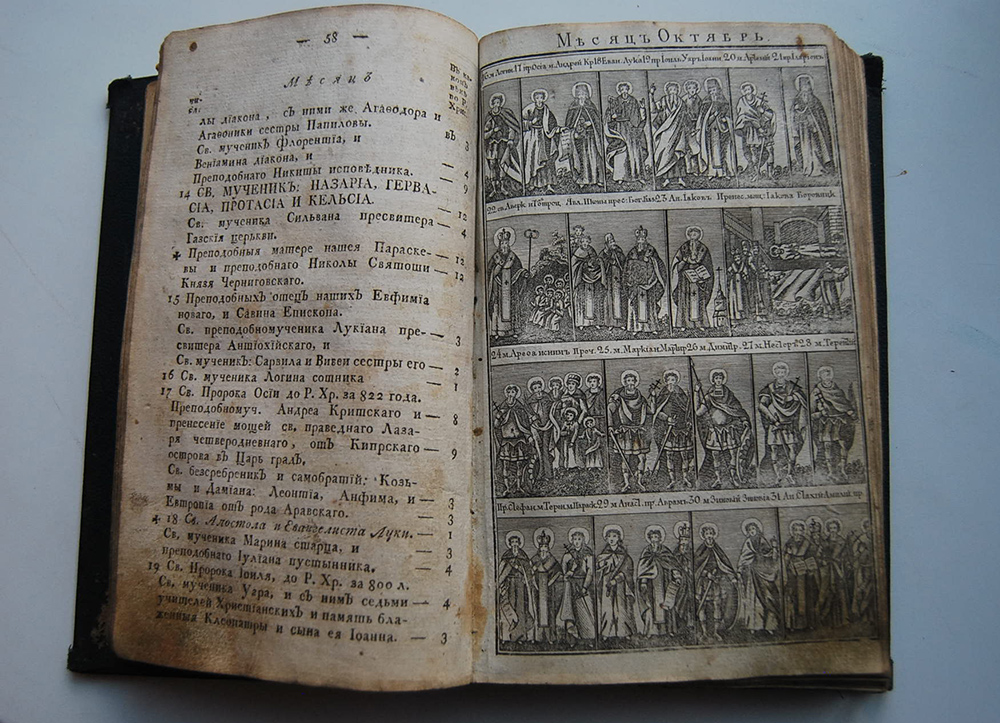 — 58 —
Мѣсяцъ
Въ ка-
комъ
вѣкѣ
по Р.
Хрис.
чи-
сла.
лы дїакона, съ ними же Агаѳодора и
Агаѳоники сестры Папиловы.
въ
Св. мученикъ Флорентїа, и
3
Венїамина дїакона, и
— 4
Преподобнаго Никиты исповѣдника. — 9
14 СВ. МУЧЕНИКЪ: НАЗАРІА, ГЕРВА-
СІА, ПРОТАСІА И КЕЛЬСІА. — 12
Св. мученика Сильвана пресвитера — 4
Газскїя церькви.
Преподобныя матере нашея Параске- — 12
вы и преподобнаго Николы Святоши — 12
Князя Черниговскаго.
15 Преподобныхъ отецъ нашихъ Евфимїа
новаго, и Савина Епископа.
Св. преподобномученика Лукїана пре- — 3
свитера Антїохїйскаго, и
Св. мученикъ: Сарвила и Вивеи сестры его — 2
16 Св. мученика Логина сотника — 1
17 Св. Пророка Осїи до Р. Хр. за 822 года.
Преподобномуч. Андреа Критскаго и — 8
пренесенїе мощей св. праведнаго Лаза-
ря четверодневнаго, отъ Кипрскаго — 9
острова въ Царь градъ,
Св. безсребреникъ и самобратїй: Козь-
мы и Дамїана: Леонтїа, Анфима, и — 3
Евтропїа отъ рода Аравскаго. — 3
18 Св. Апостола и Евангелиста Луки. — 1
Св. мученика Марина старца, и — 3
преподобнаго Іулїана пустынника. — 4
19 Св. Пророка Іоиля, до Р. Хр. за 800 л.
Св. мученика Уара, и съ нимъ седьми — 4
учителей Христїанскихъ и память бла-
женныя Клеопатры и сына ея Іоанна. — 3
Мѣсяцъ Октябрь.
Логин. 17 пр Осїа и Андрей Кр 18 Еван. Лука 19 пр Іоиль Уаръ Іоанн. 20 м. Артемій 21 пр Іларіонъ
22 св. Аверк. и отроц. Явл. Иконы прес. Бог. Каз 23 Ап. Іаковъ. Пренес. мощ. Іакова Боровицк.
24 м. Арефа 25. м. Маркїан Март. 26 м. Дим. 27 м. Нест. 28 м. Терент
Пр. Стефан м. Терн. м Параск 29 м. Анаст. пр. Аврам. 30 м Зиновїй Зиновїа 31 Ап. Стахїй Амплїй